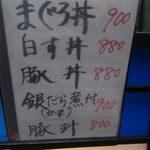 まぐろ丼 900
白す丼 880
豚丼 880
銀だら煮付 900
(かま)
豚汁 800